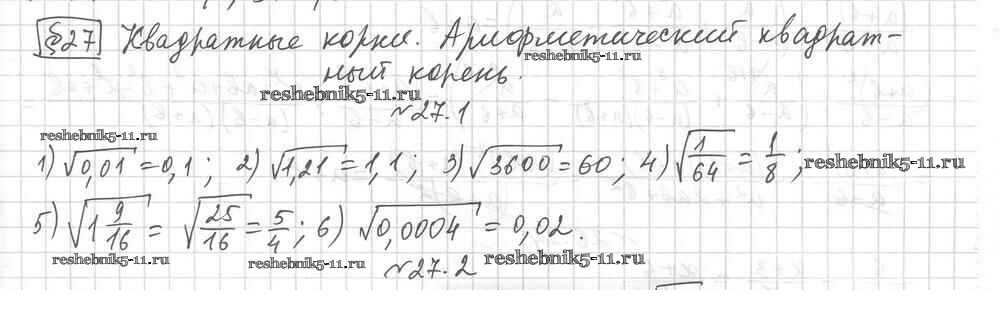 §27 Квадратные корни. Арифметический квадрат-
reshebnik5-11.ru
ный корень.
reshebnik5-11.ru
№27.1
reshebnik5-11.ru
1) √0,01 = 0,1; 2) √1,21 = 1,1; 3) √3600 = 60; 4) √1/64 = 1/8; reshebnik5-11.ru
5) √1 9/16 = √25/16 = 5/4; 6) √0,0004 = 0,02.
reshebnik5-11.ru reshebnik5-11.ru reshebnik5-11.ru
№27.2